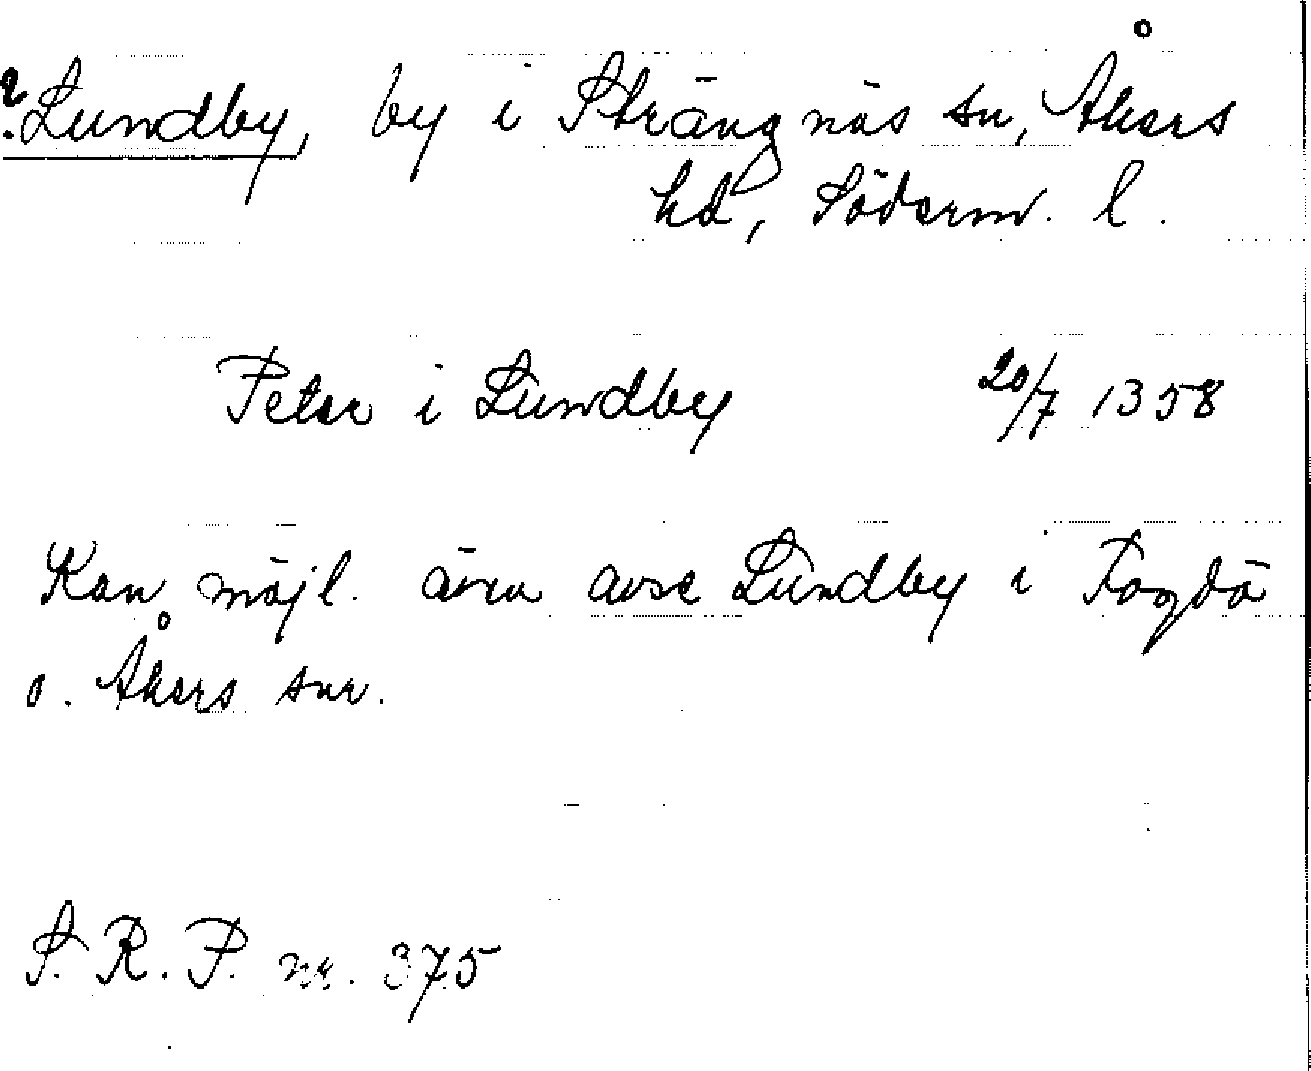 ?Lundby, by i Strängnäs sn, Åkers
hd, Söderm. l.
Peter i Lundby 20/7 1358
Kan möjl. även avse Lundby i Fogdö
o. Åkers snr.
S. R. P. nr. 375